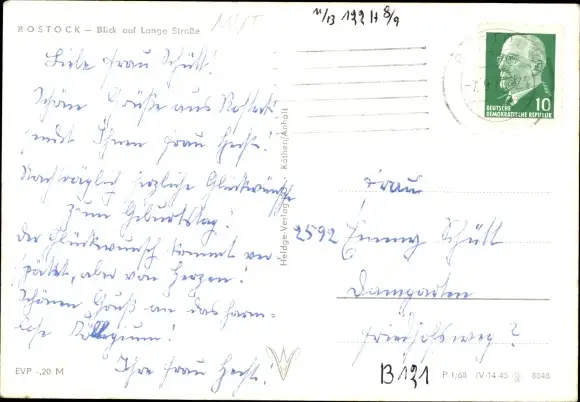 ROSTOCK – Blick auf Lange Straße
11/13 122 H 8/9
Liebe Frau Schütt!
Schöne Grüße aus Rostock
sendet Ihnen Frau Hecht!
Nachträglich herzliche Glückwünsche
zum Geburtstag!
Der Glückwunsch kommt ver-
spätet, aber von Herzen!
Schönen Gruß an das harm-
lose Kollegium!
Ihre Frau Hecht!
EVP -,20 M
Heldge-Verlag Köthen/Anhalt
DEUTSCHE
DEMOKRATISCHE REPUBLIK
10
Frau
2592 Emmy Schütt
Damgarten
Friedhofsweg ?
B 121
P 1/68 IV-14-45 8848